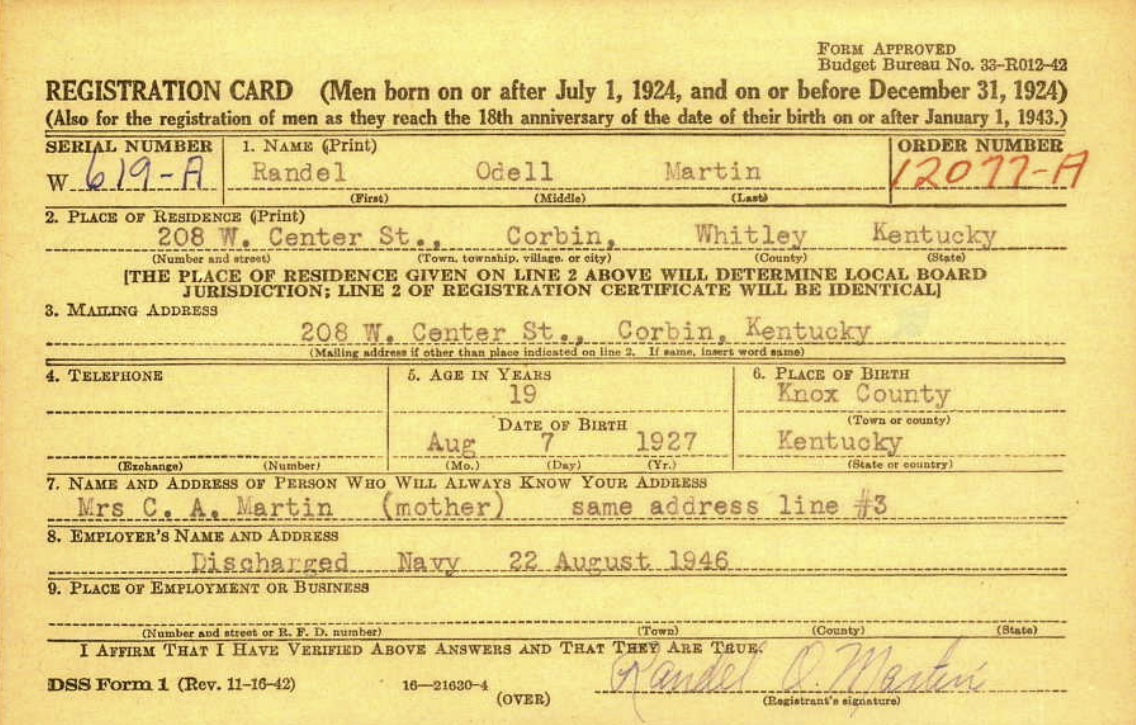 FORM APPROVED
Budget Bureau No. 33-R012-42
REGISTRATION CARD (Men born on or after July 1, 1924, and on or before December 31, 1924)
(Also for the registration of men as they reach the 18th anniversary of the date of their birth on or after January 1, 1943.)
SERIAL NUMBER 1. NAME (Print) ORDER NUMBER
W 619-A Randel Odell Martin 12077-A
(First) (Middle) (Last)
2. PLACE OF RESIDENCE (Print)
208 W. Center St., Corbin, Whitley Kentucky
(Number and street) (Town, township, village, or city) (County) (State)
[THE PLACE OF RESIDENCE GIVEN ON LINE 2 ABOVE WILL DETERMINE LOCAL BOARD
JURISDICTION; LINE 2 OF REGISTRATION CERTIFICATE WILL BE IDENTICAL]
3. MAILING ADDRESS
208 W. Center St., Corbin, Kentucky
(Mailing address if other than place indicated on line 2. If same, insert word same)
4. TELEPHONE 5. AGE IN YEARS 6. PLACE OF BIRTH
19 Knox County
DATE OF BIRTH (Town or county)
Aug 7 1927 Kentucky
(Exchange) (Number) (Mo.) (Day) (Yr.) (State or country)
7. NAME AND ADDRESS OF PERSON WHO WILL ALWAYS KNOW YOUR ADDRESS
Mrs C. A. Martin (mother) same address line #3
8. EMPLOYER'S NAME AND ADDRESS
Discharged Navy 22 August 1946
9. PLACE OF EMPLOYMENT OR BUSINESS
(Number and street or R. F. D. number) (Town) (County) (State)
I AFFIRM THAT I HAVE VERIFIED ABOVE ANSWERS AND THAT THEY ARE TRUE.
Randel O. Martin
DSS Form 1 (Rev. 11-16-42) 16—21630-4 (OVER) (Registrant's signature)